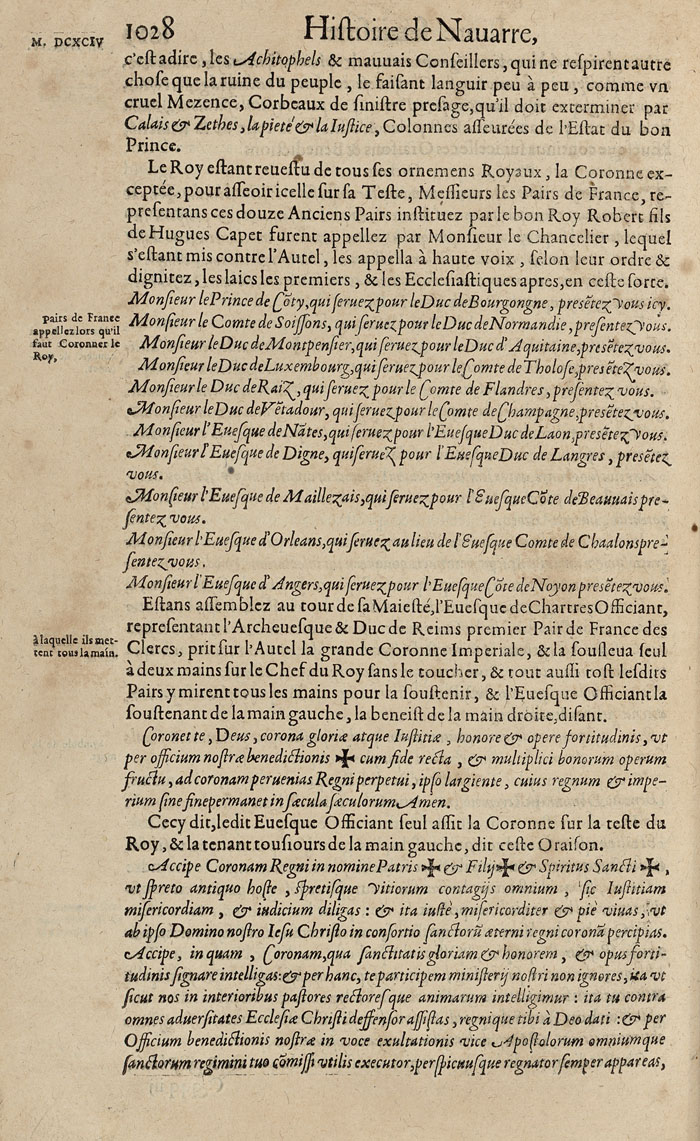 M. DCXCIV
1028 Hiſtoire de Nauarre,
c'eſt adire, les Achitophels & mauuais Conſeillers, qui ne reſpirent autre
choſe que la ruine du peuple, le faiſant languir peu à peu, comme vn
cruel Mezence, Corbeaux de ſiniſtre preſage, qu'il doit exterminer par
Calais & Zethes, la pieté & la Iuſtice, Colonnes aſſeurées de l'Eſtat du bon
Prince.
Le Roy eſtant reueſtu de tous ſes ornemens Royaux, la Coronne ex-
ceptée, pour aſſeoir icelle ſur ſa Teſte, Meſſieurs les Pairs de France, re-
preſentans ces douze Anciens Pairs inſtituez par le bon Roy Robert fils
de Hugues Capet furent appellez par Monſieur le Chancelier, lequel
s'eſtant mis contre l'Autel, les appella à haute voix, ſelon leur ordre &
dignitez, les laics les premiers, & les Eccleſiaſtiques apres, en ceſte ſorte.
Monſieur le Prince de Cõty, qui ſeruez pour le Duc de Bourgongne, preſẽtez vous icy.
pairs de France
appellez lors qu'il
faut Coronner le
Roy,
Monſieur le Comte de Soiſſons, qui ſeruez pour le Duc de Normandie, preſentez vous.
Monſieur le Duc de Montpenſier, qui ſeruez pour le Duc d'Aquitaine, preſẽtez vous.
Monſieur le Duc de Luxembourg, qui ſeruez pour le Comte de Tholoſe, preſẽtez vous.
Monſieur le Duc de Raiz, qui ſeruez pour le Comte de Flandres, preſentez vous.
Monſieur le Duc de Vẽtadour, qui ſeruez pour le Comte de Champagne, preſẽtez vous.
Monſieur l'Eueſque de Nãtes, qui ſeruez pour l'Eueſque Duc de Laon, preſẽtez vous.
Monſieur l'Eueſque de Digne, qui ſeruez pour l'Eueſque Duc de Langres, preſẽtez
vous.
Monſieur l'Eueſque de Maillezais, qui ſeruez pour l'Eueſque Cõte de Beauuais pre-
ſentez vous.
Monſieur l'Eueſque d'Orleans, qui ſeruez au lieu de l'Eueſque Comte de Chaalons pre-
ſentez vous.
Monſieur l'Eueſque d'Angers, qui ſeruez pour l'Eueſque Cõte de Noyon preſẽtez vous.
Eſtans aſſemblez au tour de ſa Maieſté, l'Eueſque de Chartres Officiant,
repreſentant l'Archeueſque & Duc de Reims premier Pair de France des
à laquelle ils met-
tent tous la main.
Clercs, prit ſur l'Autel la grande Coronne Imperiale, & la ſouſleua ſeul
à deux mains ſur le Chef du Roy ſans le toucher, & tout auſſi toſt leſdits
Pairs y mirent tous les mains pour la ſouſtenir, & l'Eueſque Officiant la
ſouſtenant de la main gauche, la beneiſt de la main droite, diſant.
Coronet te, Deus, corona gloriæ atque Iuſtitiæ, honore & opere fortitudinis, vt
per officium noſtræ benedictionis ✠ cum fide recta, & multiplici bonorum operum
fructu, ad coronam peruenias Regni perpetui, ipſo largiente, cuius regnum & impe-
rium ſine fine permanet in ſæcula ſæculorum Amen.
Cecy dit, ledit Eueſque Officiant ſeul aſſit la Coronne ſur la teſte du
Roy, & la tenant touſiours de la main gauche, dit ceſte Oraiſon.
Accipe Coronam Regni in nomine Patris ✠ & Filij ✠ & Spiritus Sancti ✠,
vt ſpreto antiquo hoſte, ſpretiſque vitiorum contagijs omnium, ſic Iuſtitiam
miſericordiam, & iudicium diligas: & ita iuſtè, miſericorditer & piè viuas, vt
ab ipſo Domino noſtro Ieſu Chriſto in conſortio ſanctorũ æterni regni coronã percipias.
Accipe, in quam, Coronam, qua ſanctitatis gloriam & honorem, & opus forti-
tudinis ſignare intelligas: & per hanc, te participem miniſterij noſtri non ignores, ita vt
ſicut nos in interioribus paſtores rectoreſque animarum intelligimur: ita tu contra
omnes aduerſitates Eccleſiæ Chriſti deffenſor aſſiſtas, regnique tibi à Deo dati: & per
Officium benedictionis noſtræ in voce exultationis vice Apoſtolorum omniumque
ſanctorum regimini tuo cõmiſſi vtilis executor, perſpicuuſque regnator ſemper appareas,